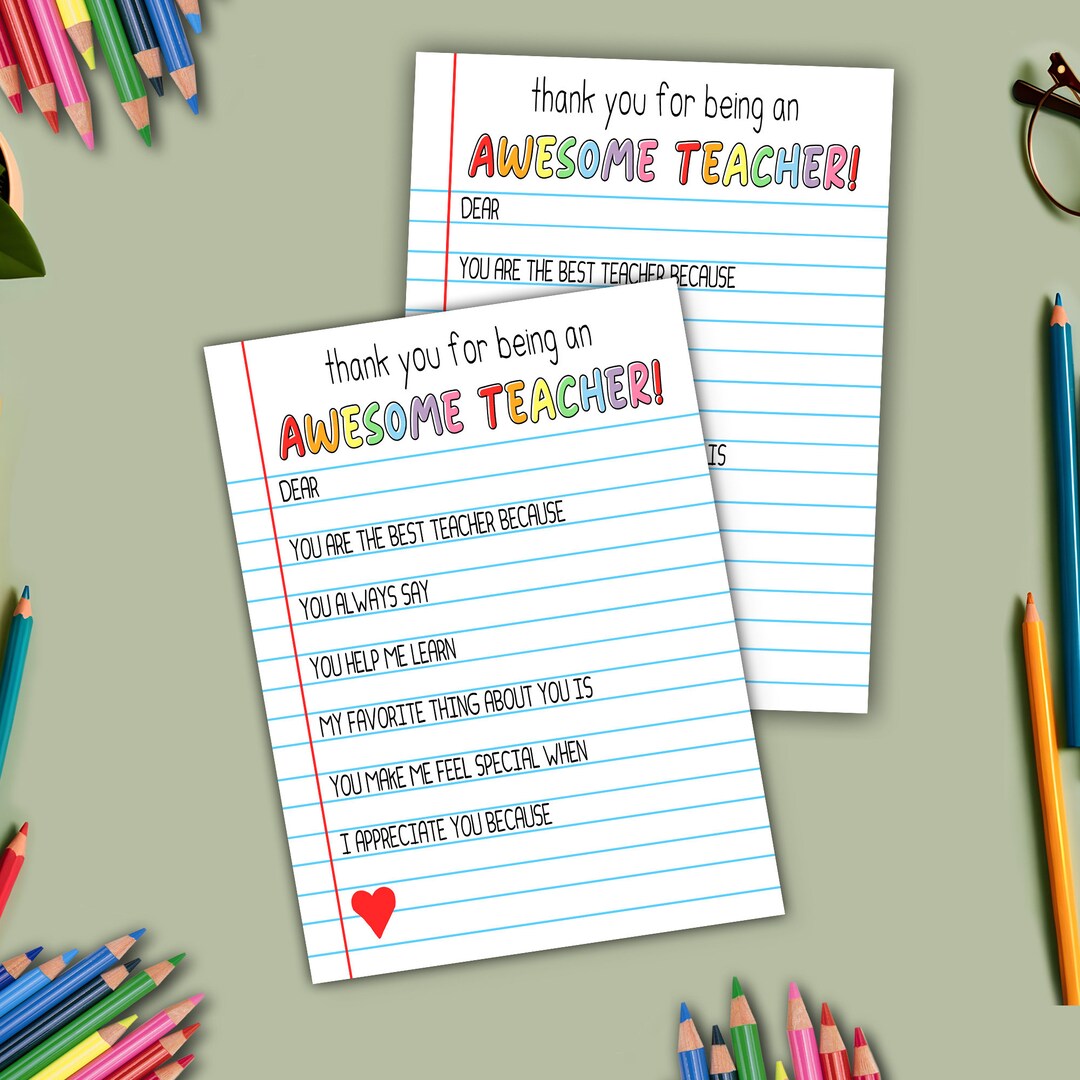 thank you for being an
AWESOME TEACHER!
DEAR
YOU ARE THE BEST TEACHER BECAUSE
IS
thank you for being an
AWESOME TEACHER!
DEAR
YOU ARE THE BEST TEACHER BECAUSE
YOU ALWAYS SAY
YOU HELP ME LEARN
MY FAVORITE THING ABOUT YOU IS
YOU MAKE ME FEEL SPECIAL WHEN
I APPRECIATE YOU BECAUSE